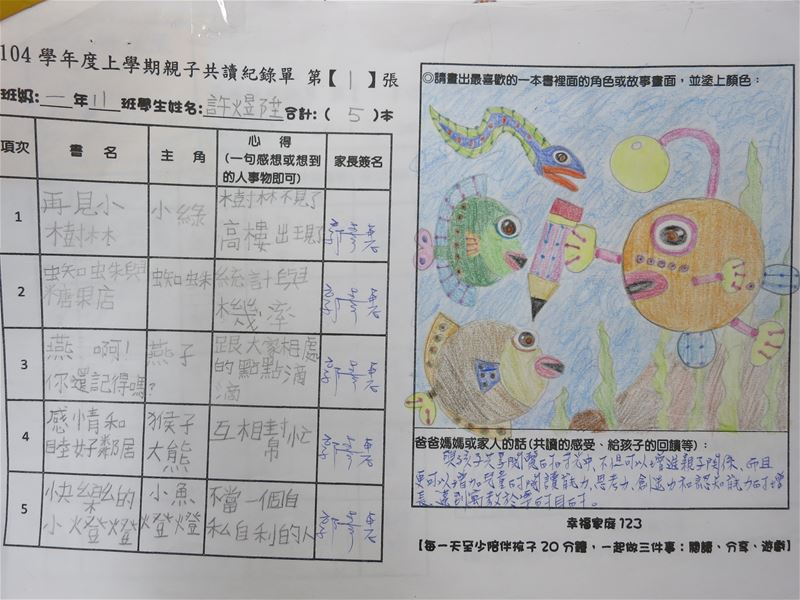 104 學年度上學期親子共讀紀錄單 第【1】張
班級:一年11班學生姓名:許煜陞合計:(5)本
項次 書 名 主 角 心 得 家長簽名
(一句感想或想到
的人事物即可)
1 再見小 小綠 樹林不見了
樹林 高樓出現了
2 蜘蛛與 蜘蛛 統計與
糖果店 機率
3 燕 啊! 燕子 跟大家相處
你還記得嗎? 的點點滴
滴
4 感情和 猴子 互相幫忙
睦好鄰居 大熊
5 快樂的 小魚 不當一個自
小燈燈 燈燈 私自利的人
◎請畫出最喜歡的一本書裡面的角色或故事畫面,並塗上顏色:
爸爸媽媽或家人的話(共讀的感受、給孩子的回饋等):
與孩子共享閱覽的知識中,不但可以增進親子關係,而且
更可以增加兒童的閱讀能力,思考力,創造力和認知能力的增
長,達到寓教於樂的目的。
幸福家庭 123
【每一天至少陪伴孩子 20 分鐘,一起做三件事:閱讀、分享、遊戲】